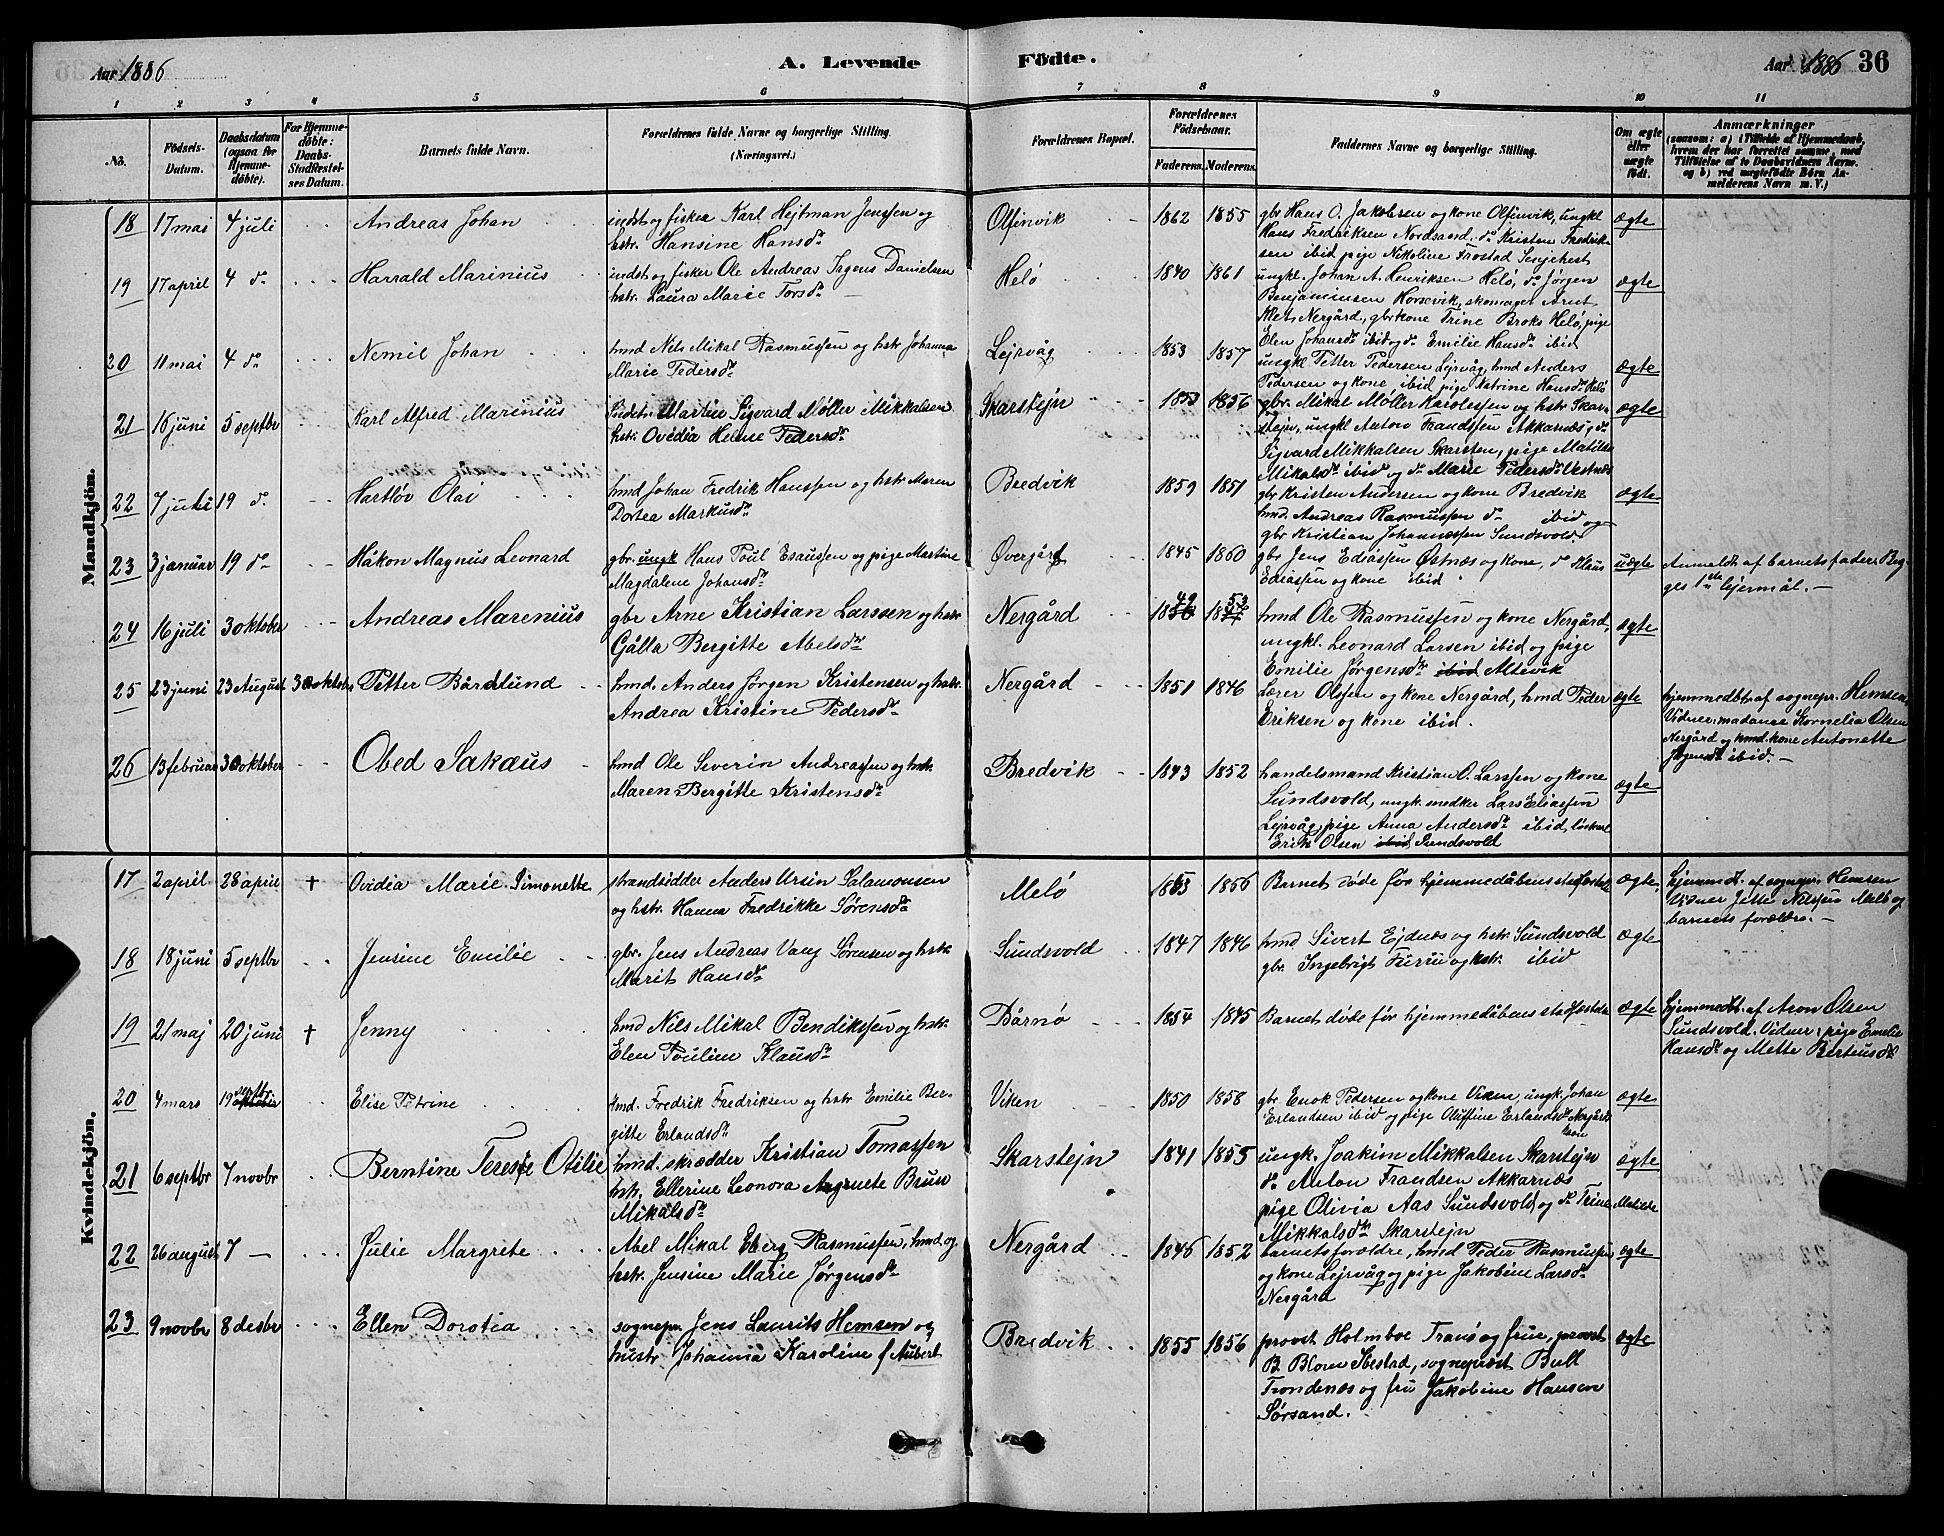 Aar 1886
A. Levende
Fødte.
Aar 1886
36
1 2 3 4 5 6 7 8 9 10 11
No.
Fødsels-Datum.
Daabsdatum (ogsaa for Hjemme-døbte).
For Hjemme-døbte: Daabs-Stadfæstel-ses Datum.
Barnets fulde Navn.
Forældrenes fulde Navne og borgerlige Stilling. (Næringsvei.)
Forældrenes Bopæl.
Forældrenes Fødselsaar.
Faderens. Moderens.
Faddernes Navne og borgerlige Stilling.
Om ægte eller uægte født.
Anmærkninger
(saasom: a) i Tilfælde af Hjemmedaab, hvem der har forrettet samme, med Tilføielse af to Daabsvidners Navne. og b) ved uægtefødte Børn An-melderens Navn m. V.)
Mandkjøn.
18 17 mai 4 juli Andreas Johan
indst og fisker Karl Hejtman Jenssen og
hstr. Hansine Hansdr
Olfinvik 1862 1855
gbr Hans O. Jakobsen og kone Olfinvik, ungkl
Hans Fredriksen Nordsand, do Kristen Fredrik-
sen ibid pige Nikoline Frostad Senjehest
ægte
19 17 april 4 do Harrald Marinius
indst og fisker Ole Andreas Ingens Danielsen
hstr. Laura Marie Torsdr
Helø 1840 1861
ungkl. Johan A. Henriksen Helø, do Jørgen
Benjaminsen Horsevik, skomager Arnt
Nergård, gbrkone Trine Broks Helø, pige
Elen Johansdr ibid og do Emilie Hansdr ibid
ægte
20 11 mai 4 do Nemil Johan
hmd Nils Mikal Rasmussen og hstr Johanna
Marie Pedersdr
Lejrvåg 1853 1857
ungkl Petter Pedersen Lejrvåg, hmd Anders
Pedersen og kone ibid pige Katrine Hansdr Helø
ægte
21 16 juni 5 septbr Karl Alfred Marinius
Indstr. Martin Sigvard Møller Mikkalsen
hstr. Ovedia Heline Pedersdr
Skarstejn 1853 1856
gbr. Mikal Møller Karolessen og hstr Skar-
stejn, ungkl Anton Frandssen Akkarnæs, do
Sigvard Mikkalsen Skarsten, pige Matilde
Mikalsdr ibid og do Marie Pedersdr Vestnæs
ægte
22 7 juli 19 do Hartløv Olai
hmd Johan Fredrik Hanssen og hstr Maren
Dortea Markusdr
Bredvik 1859 1851
gbr Kristen Andersen og kone Bredvik
hmd. Andreas Rasmussen do ibid og
gbr Kristian Johannessen Sundsvold
ægte
23 3 januar 19 do Håkon Magnus Leonard
gbr. ungk Hans Poul Esaussen og pige Martine
Magdalene Johansdr
Øvergård 1845 1860
gbr Jens Ediassen Østnæs og kone, do Klaus
Ediassen og kone ibid
uægte
Anmeldt af barnets fader. Beg-
ges 1ste lejermål.
24 16 juli 3 oktober Andreas Marenius
gbr Arne Kristian Larssen og hstr
Gålla Bergitte Abelsdr
Nergård 49 53
hmd Ole Rasmussen og kone Nergård,
ungkl. Leonard Larsen ibid og pige
Emilie Jørgensdr ibid Altevik
ægte
25 23 juni 23 August 3 oktobr Petter Bårdlund
hmd. Anders Jørgen Kristensen og hstr.
Andrea Kristine Pedersdr
Nergård 1851 1846
Lærer Olssen og kone Nergård, hmd Peder
Eriksen og kone ibid.
ægte
hjemmedbt. af sognepr. Hemsen
Vidner: madame Kornelia Olsen
Nergård og hmd.kone Antonette
Jørgensdr ibid.
26 13 februar 3 oktober Obed Sakæus
hmd Ole Severin Andreassen og hstr
Maren Bergitte Kristensdr
Bredvik 1843 1852
handelsmand Kristian O. Larssen og kone
Sundsvold, ungk. snedker Lars Eliassen
Lejrvåg, pige Anna Andersdr ibid, løskarl
Erik Olsen ibid Sundsvold
ægte
Kvindekjøn.
17 2 april 28 april † Ovidia Marie Simonette
strandsidder Anders Ursin Salamonsen
og hstr. Hanna Fredrikke Sørensdr
Melø 1853 1856
Barnet døde før hjemmedåbens stadfæstelse
ægte
hjemmedbt. af sognepr. Hemsen
Vidner Jette Nilssen Melø og
barnets forældre.
18 18 juni 5 septbr Jensine Emilie
gbr. Jens Andreas Vang Sørensen og hstr
Marit Hansdr
Sundsvold 1847 1846
hmd Sivert Ejdnæs og hstr. Sundsvold
gbr. Ingebrigt Furru og hstr. ibid
ægte
19 21 maj 20 juni † Jenny
hmd Nils Mikal Bendikssen og hstr.
Elen Pouline Klausdr
Bårnø 1854 1845
Barnet døde før hjemmedåbens stadfæstelse
ægte
hjemmedbt. af Aron Olsen
Sundsvold. Vidner: pige Emelie
Hansdr og Mette Berteusdr
20 4 mars 19 septbr oktober Elise Petrine
hmd. Fredrik Fredriksen og hstr Emilie Ber-
gitte Erlandsdr
Viken 1850 1858
gbr Enok Pedersen og kone Viken, ungk. Johan
Erlandsen ibid og pige Oluffine Erlandsdr Nergård
ægte
21 6 septbr 7 novbr Berntine Terese Otilie
hmd. skrædder Kristian Tomassen
hstr. Ellerine Leonora Agnete Brun
Mikalsdr
Skarstejn 1841 1853
ungk. Joakim Mikkalsen Skarstejn
do Anton Frandsen Akkarnæs
pige Olivia Aas Sundsvold og do Trine Matilde
Mikkalsdr Skarstejn
ægte
22 26 august 7 — Julie Margrete
Abel Mikal Eberg Rasmussen, hmd og
hstr. Jensine Marie Jørgensdr
Nergård 1846 1852
barnets forældre, hmd Peder Rasmussen
og kone Lejrvåg og pige Jakobine Larsdr
Nergård
ægte
23 9 novbr 8 desbr Ellen Dorotea
sognepr. Jens Laurits Hemsen og
hustr Johanna Karoline f Aubert
Bredvik 1855 1856
provst Holmboe Tranø og frue, provst
B. Blom Ibestad, sogneprest Bull
Trondenæs og frú Jakobine Hansen
Sørsand.
ægte